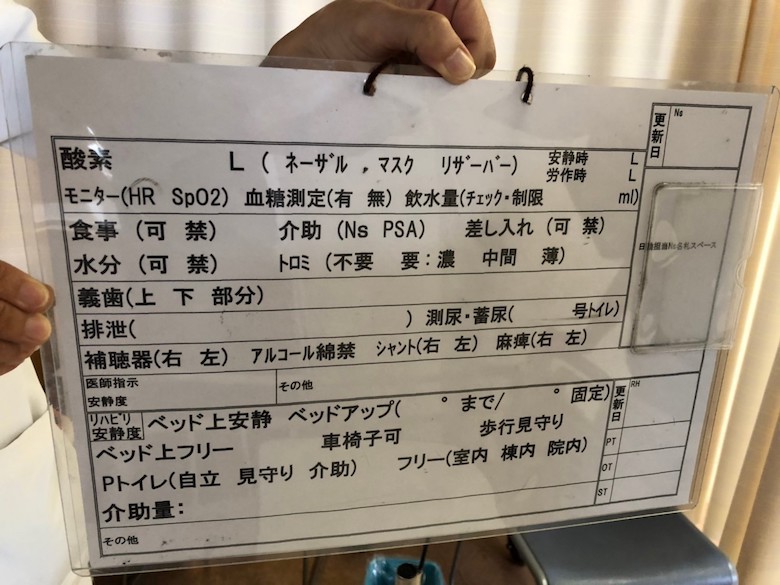 更新日 Ns
酸素 L ( ネーザル , マスク リザーバー) 安静時 L
労作時 L
モニター(HR SpO2) 血糖測定(有 無) 飲水量(チェック・制限 ml)
食事 (可 禁) 介助 (Ns PSA) 差し入れ (可 禁)
水分 (可 禁) トロミ (不要 要:濃 中間 薄)
義歯(上 下 部分)
排泄( ) 測尿・蓄尿( 号トイレ)
補聴器(右 左) アルコール綿禁 シャント(右 左) 麻痺(右 左)
医師指示
安静度
その他
リハビリ
安静度
ベッド上安静 ベッドアップ( ° まで/ ° 固定)
ベッド上フリー 車椅子可 歩行見守り
Pトイレ(自立 見守り 介助) フリー(室内 棟内 院内)
介助量:
その他
更新日 RH
PT
OT
ST